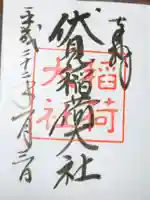 奉拝
伏見稲荷大社
平成二十二年一月三日
稲荷
大社